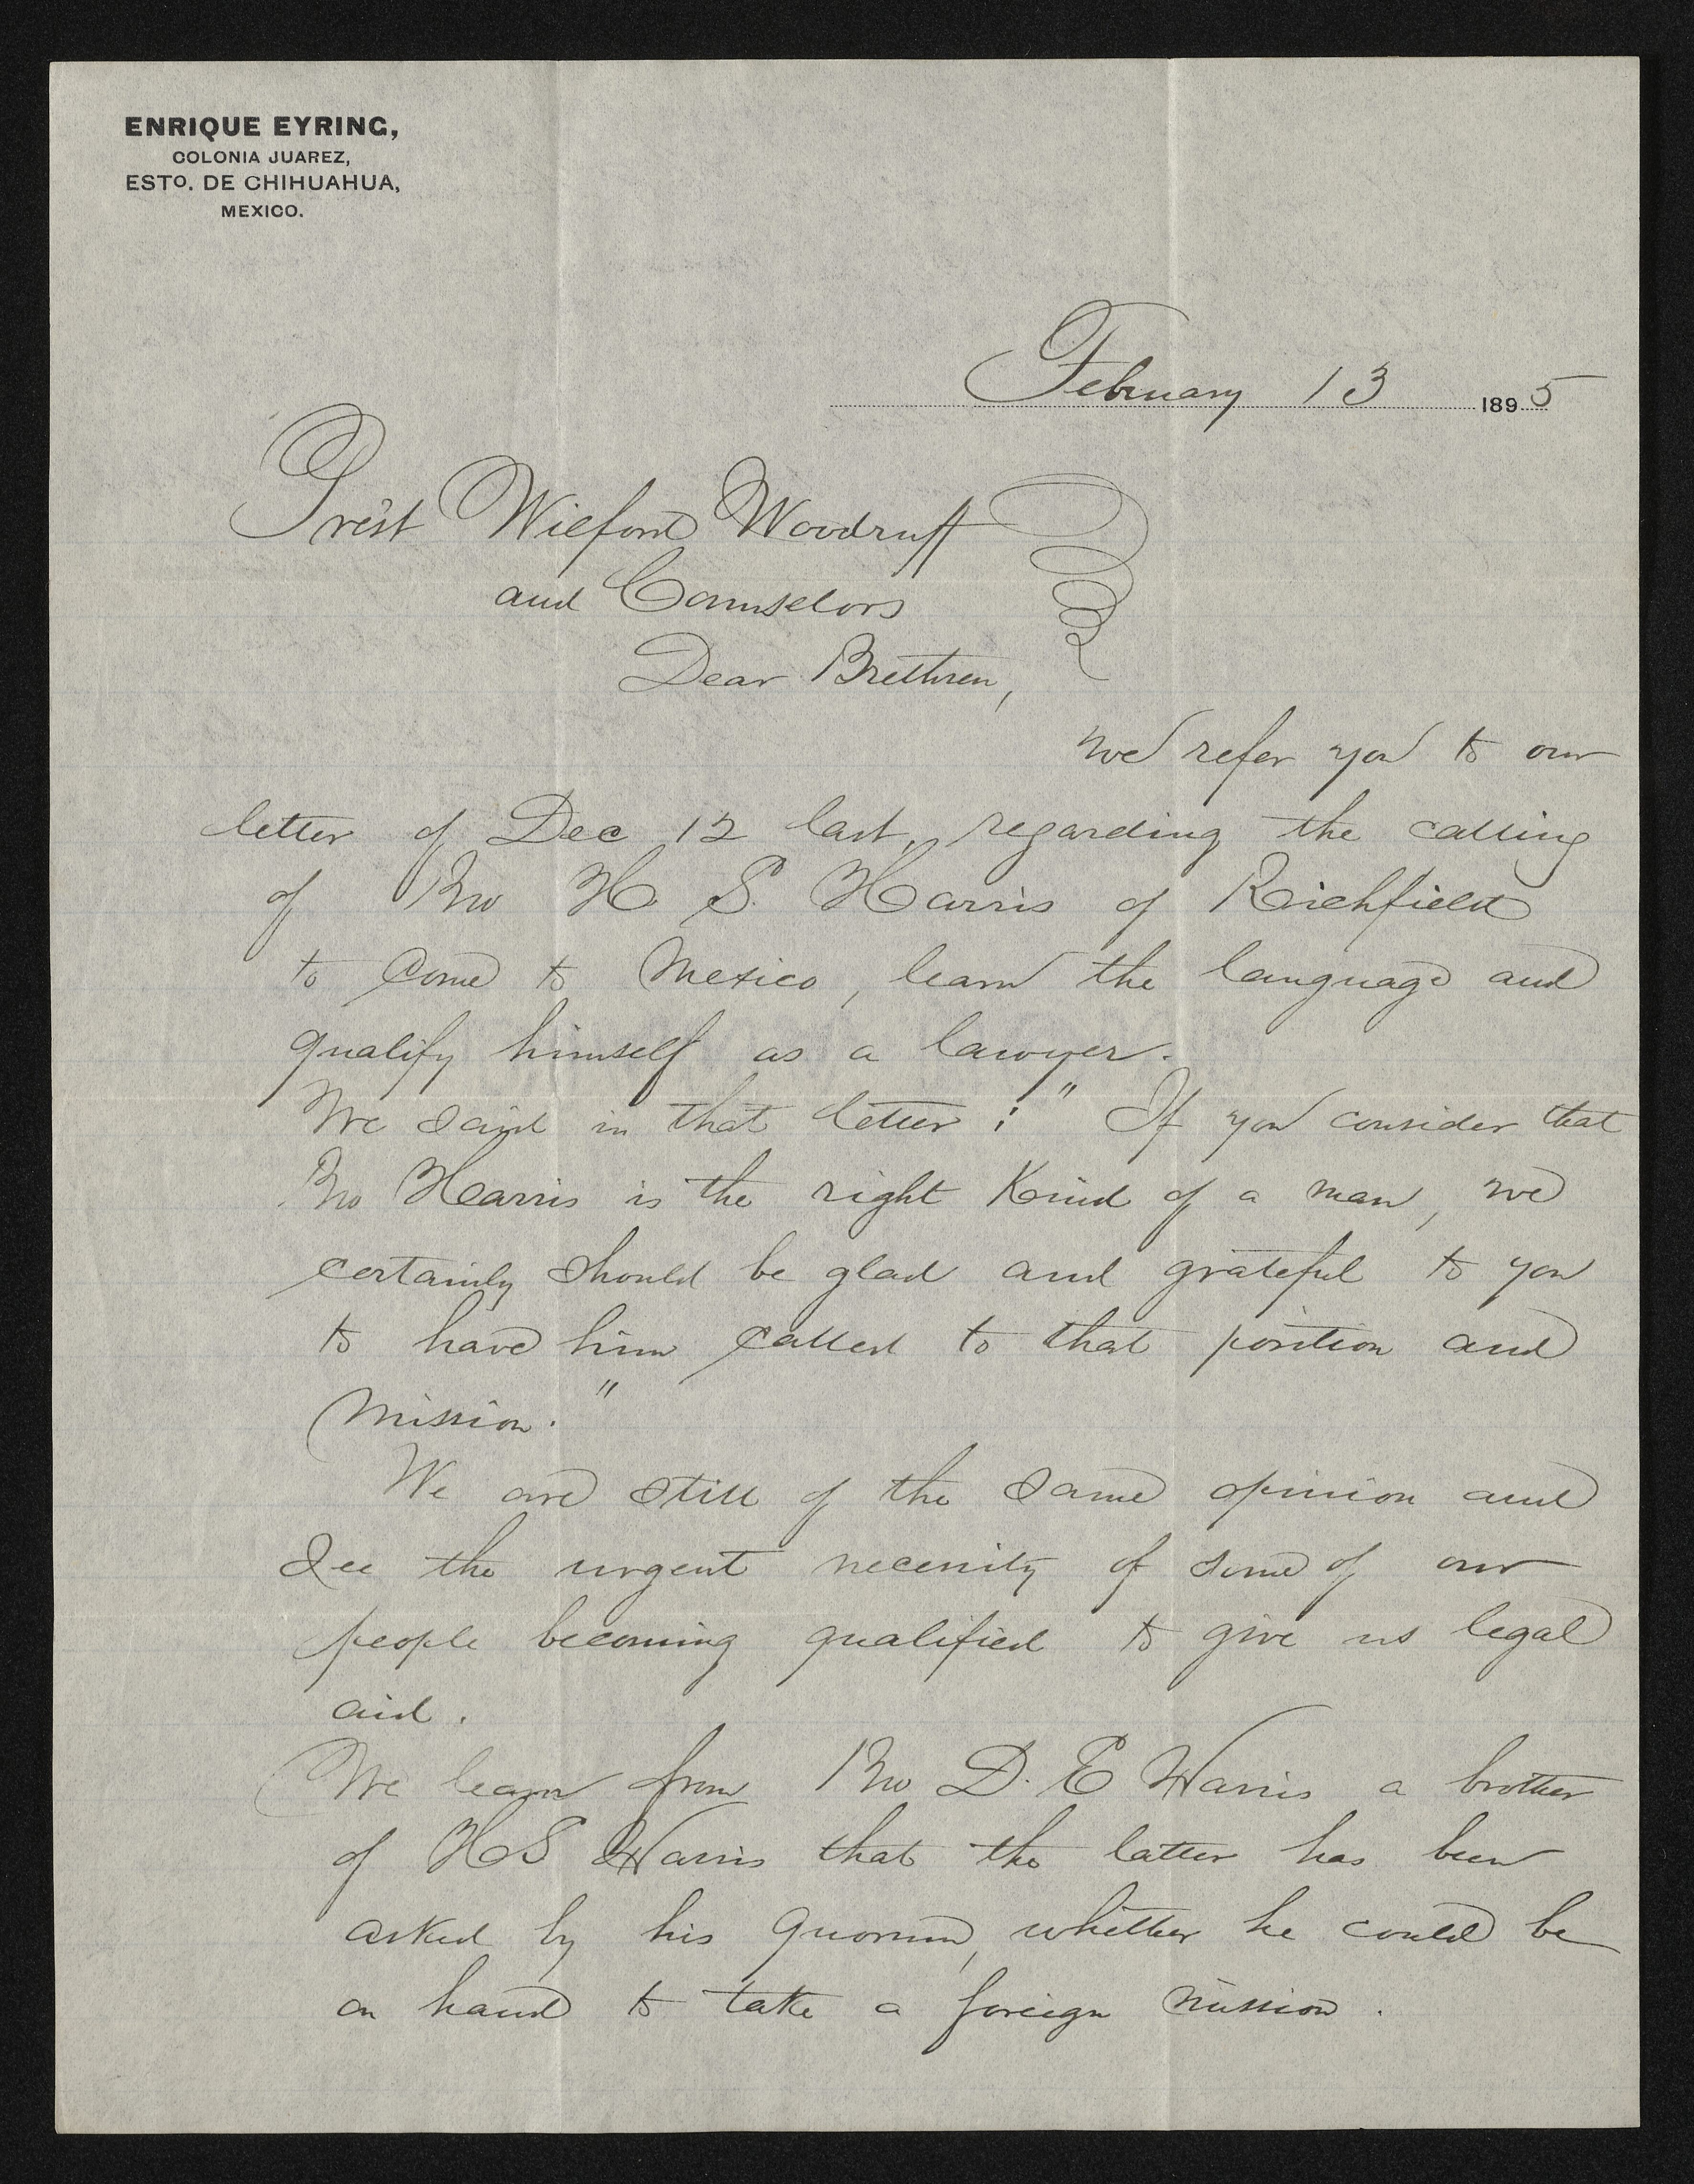 ENRIQUE EYRING,
COLONIA JUAREZ,
ESTO. DE CHIHUAHUA,
MEXICO.
February 13 1895
Prest Wilford Woodruff
and Counselors
Dear Brethren,
We refer you to our
letter of Dec 12 last, regarding the calling
of Bro H. S. Harris of Richfield
to come to Mexico, learn the language and
qualify himself as a lawyer.
We said in that letter: "If you consider that
Bro Harris is the right kind of a man, we
certainly should be glad and grateful to you
to have him called to that position and
mission."
We are still of the same opinion and
see the urgent necessity of some of our
people becoming qualified to give us legal
aid.
We learn from Bro D. E Harris a brother
of H S Harris that the latter has been
asked by his Quorum, whether he could be
on hand to take a foreign mission.